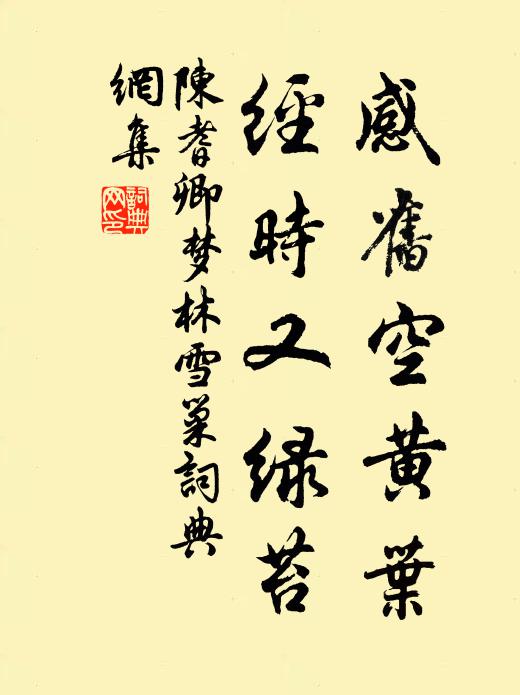 感舊空黄葉
經時又綠苔
陳耆卿梦林雪巢詞典
網集
詞典網印